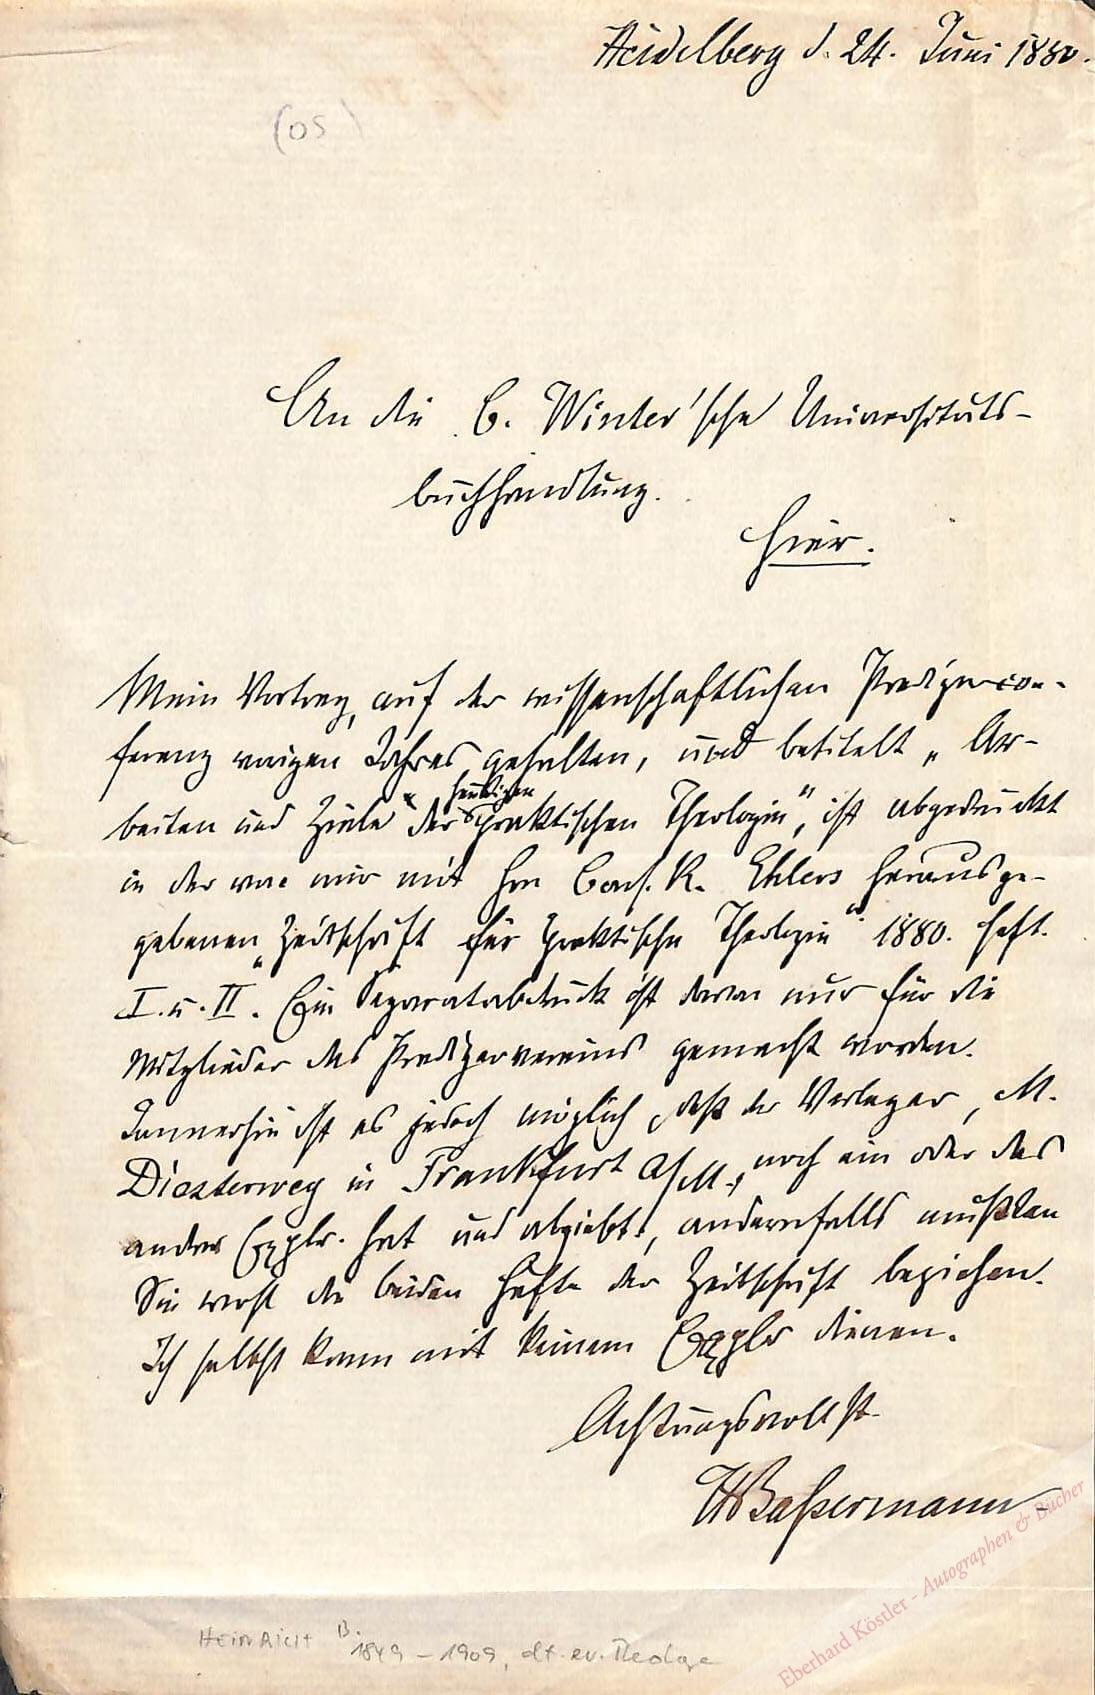 Heidelberg d. 24. Juni 1880.
(OS)
An die C. Winter'sche Universitäts-
buchhandlung.
Hier.
Mein Vortrag, auf der wissenschaftlichen Predigercon-
ferenz vorigen Jahres gehalten, und betitelt „Ar-
heutigen
beiten und Ziele der praktischen Theologie", ist abgedruckt
in der von mir mit Hrn Cons. R. Ehlers herausge-
gebenen „Zeitschrift für praktische Theologie" 1880. Heft.
I. u. II. Ein Separatabdruck ist davon nur für die
Mitglieder des Predigervereins gemacht worden.
Immerhin ist es jedoch möglich, daß der Verleger, M.
Diesterweg in Frankfurt a/M., noch ein oder das
andre Explr. hat und abgiebt, andernfalls müßten
Sie wohl die beiden Hefte der Zeitschrift beziehen.
Ich selbst kann mit keinem Explr dienen.
Achtungsvollst
HBassermann
Heinrich B.
1849 - 1909, dt. ev. Theologe
Eberhard Köstler - Autographen & Bücher